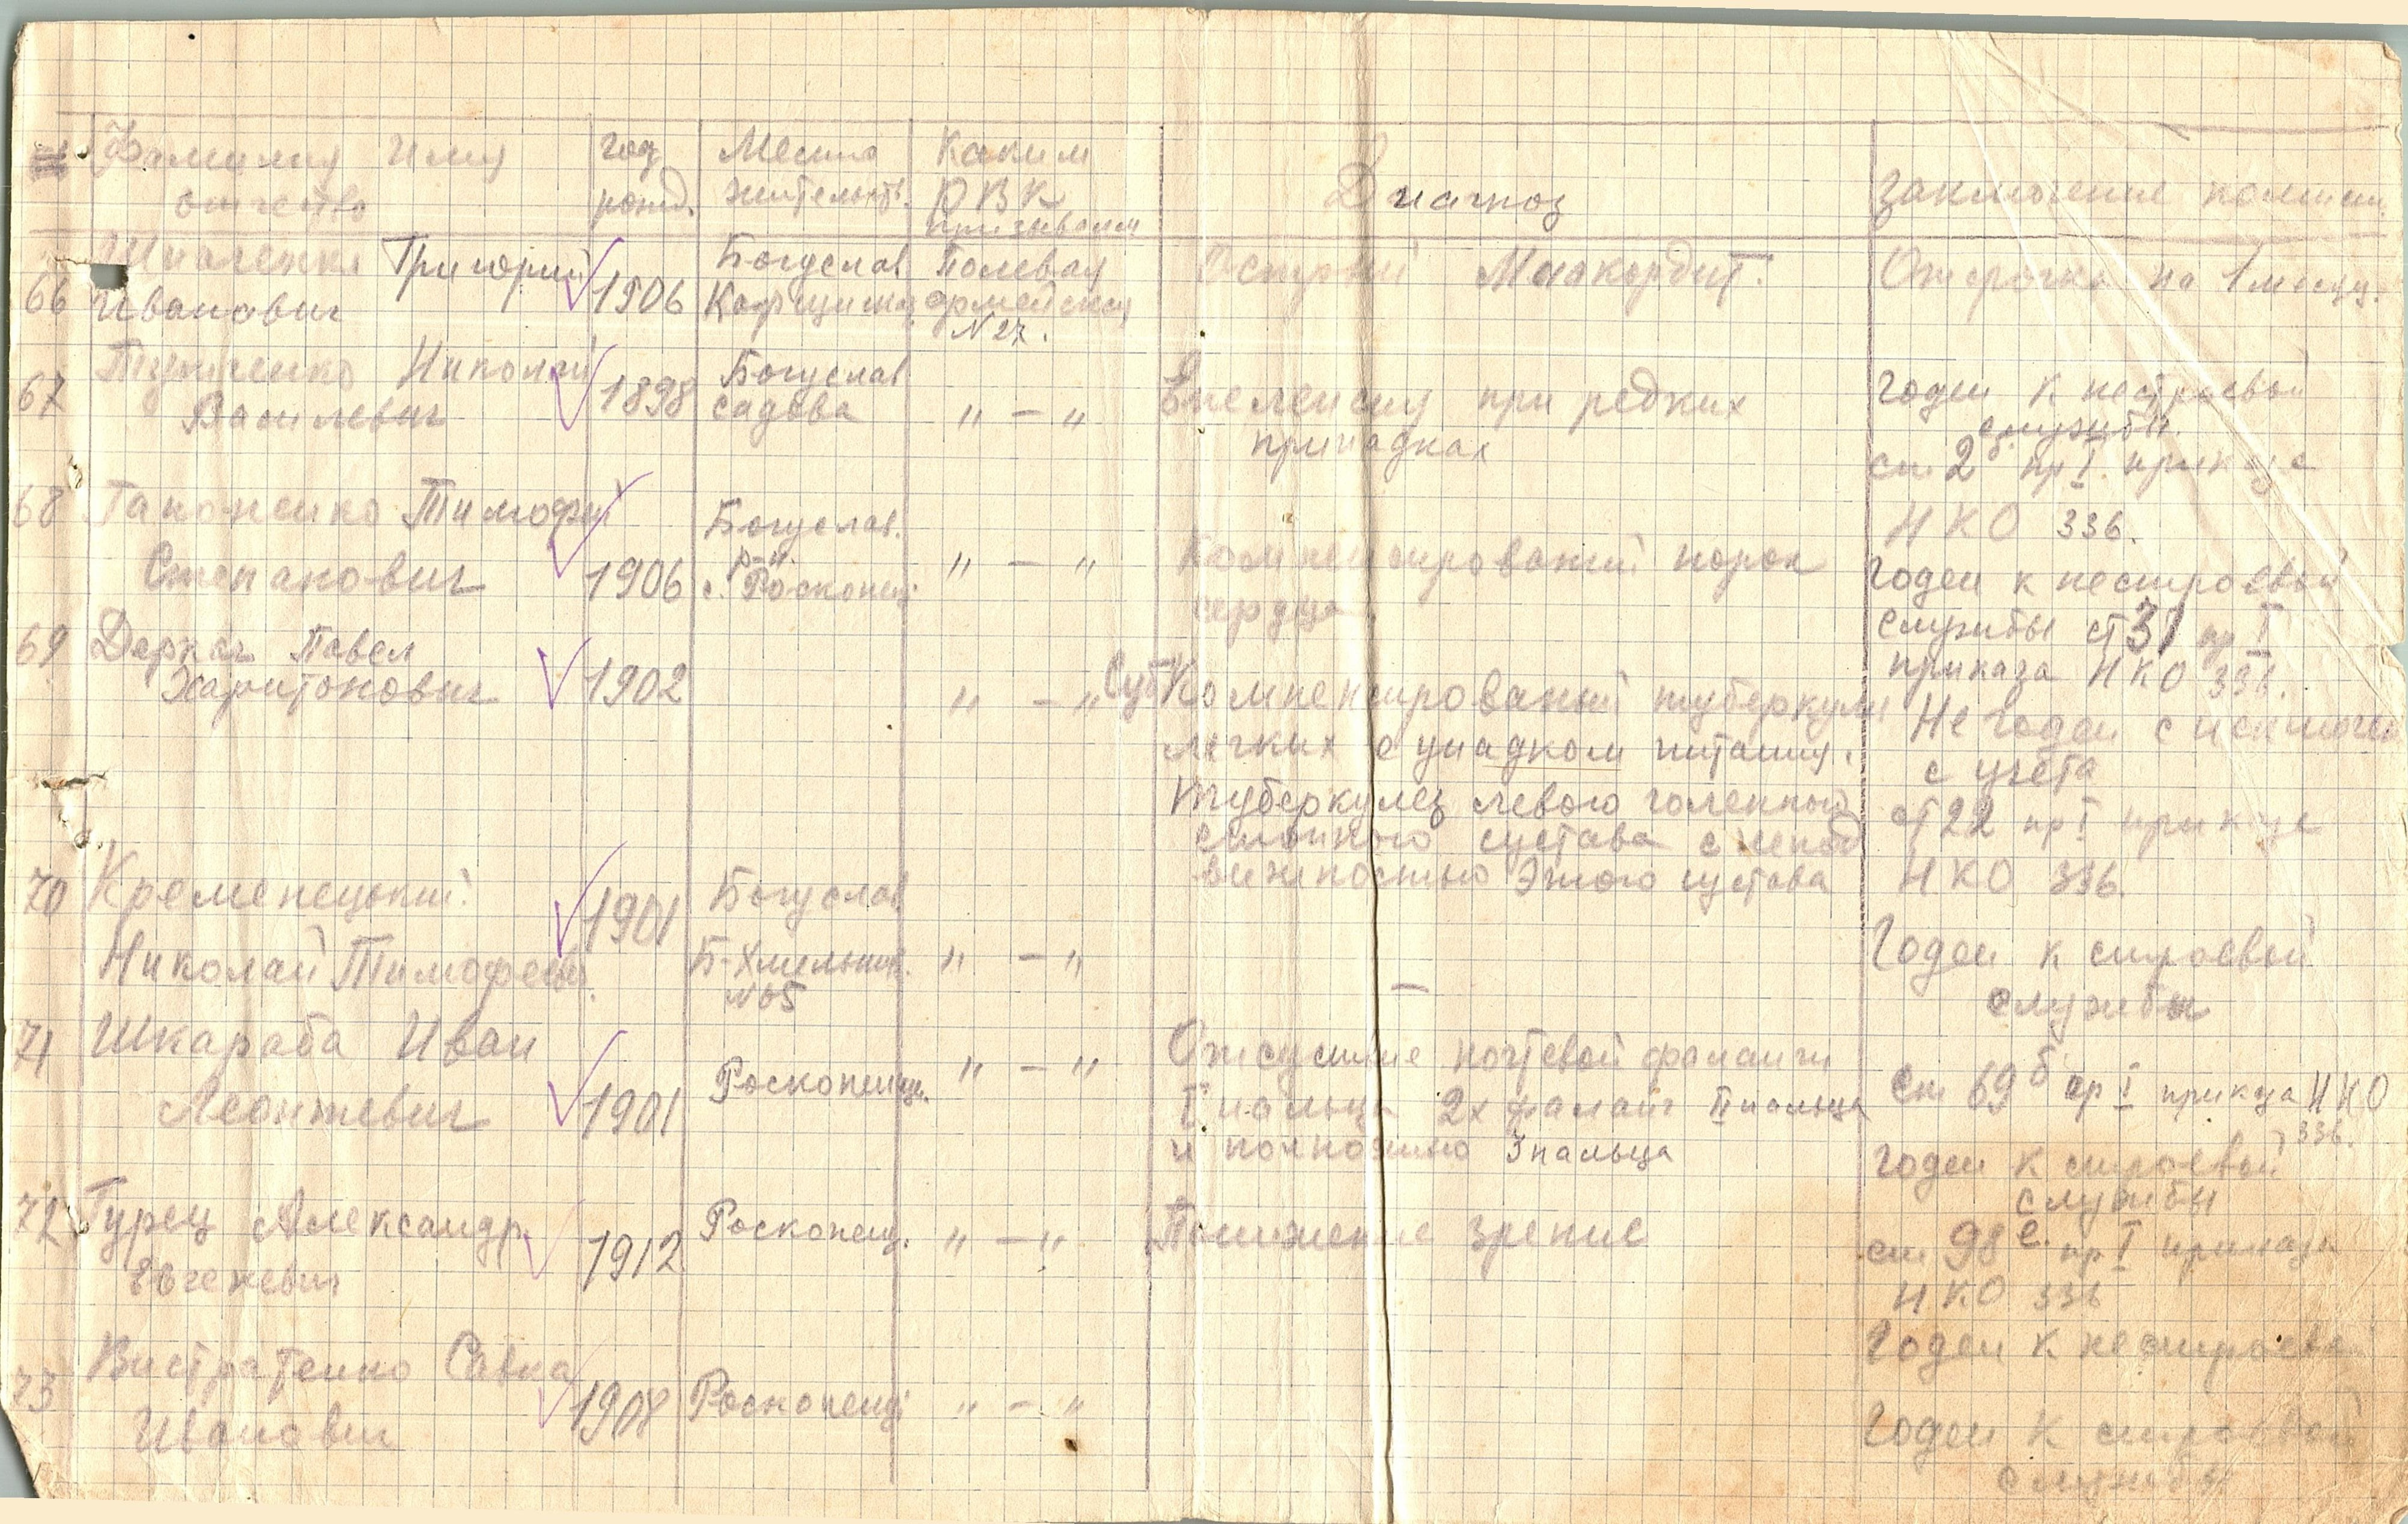 Фамилия Имя
отчество
год
рожд.
Место
жительств.
Каким
РВК
призывался
Диагноз
Заключение комисии
66
Григорий
Иванович
1906
Богуслав
Полевая
армейская
N 27.
Острый Миокордит.
Отсрочка на 1 месяц.
67
Николай
Василевич
1898
Богуслав
садова
" — "
Епелепсия при редких
припадках
Годен к нестроевой
службы.
ст. 2б. пр I. приказа
НКО 336.
68
Гапоненко Тимофей
Степанович
1906
Богуслав.
р-н.
с. Роскопенці
" — "
Компенсированый порок
сердца.
Годен к нестроевой
службы ст 37 пр I
приказа НКО 336.
69
Деркач Павел
Харитонович
1902
" — "
Суб Компенсированый туберкулез
легких с упадком питания.
Туберкулез левого голенной
стопного сустава с непод
вижностью этого сустава
Не годен с исключен
с учёта
ст 22 пр I приказа
НКО 336.
70
Кременецький
Николай Тимофеев.
1901
Богуслав
Б-Хмельниц.
" — "
—
Годен к строевой
службы
71
Шкараба Иван
Леонтевич
1901
Роскопенци.
" — "
Отсуствие ногтевой фаланги
I пальца 2х фаланг II пальца
и полностью 3 пальца
ст 69б пр I приказа НКО
336.
Годен к строевой
службы
72
Гурец Александр
Евгеневич
1912
Роскопенц.
" — "
Понижение зрение
ст 98е. пр I приказа
НКО 336
Годен к нестроево
73
Вистратенко Савка
Иванович
1908
Роскопенці
" — "
Годен к строевой
службы